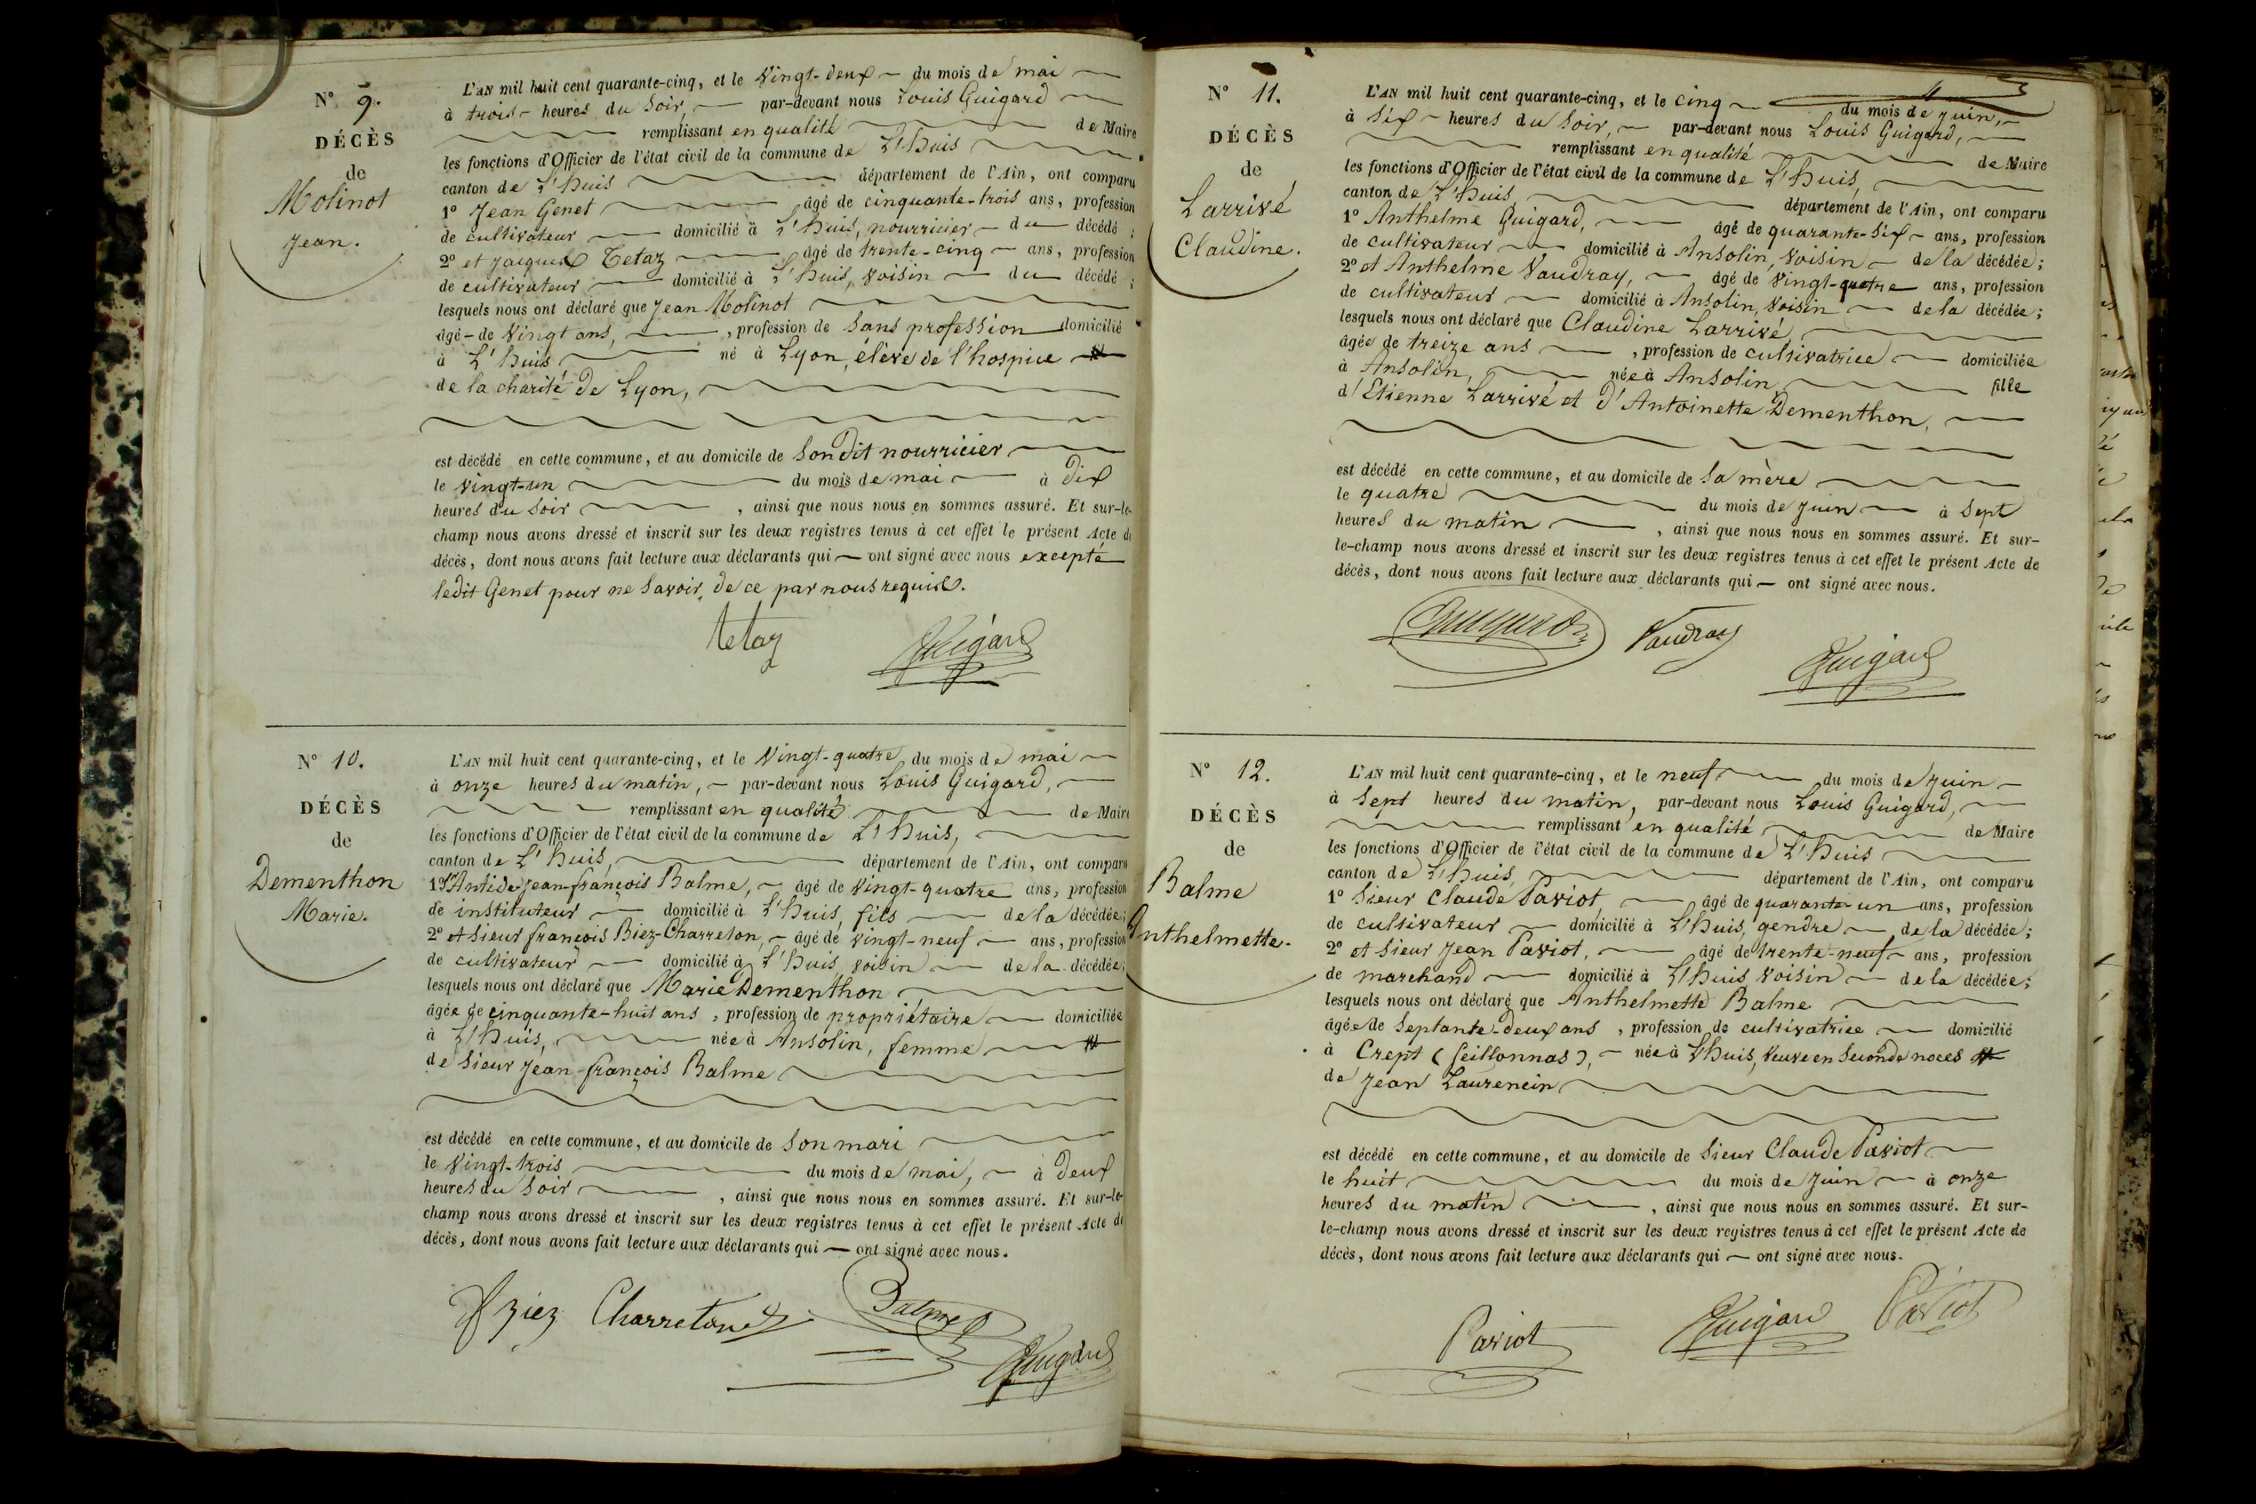 N° 9.
DÉCÈS
de
Molinot
Jean.
L'AN mil huit cent quarante-cinq, et le vingt-deux du mois de mai
à trois heures du soir, par-devant nous Louis Guigard
remplissant en qualité de Maire
les fonctions d'Officier de l'état civil de la commune de L'huis
canton de L'huis département de l'Ain, ont comparu
1° Jean Genet âgé de cinquante-trois ans, profession
de cultivateur domicilié à L'huis, nourricier du décédé ;
2° et Jacques Tetaz âgé de trente-cinq ans, profession
de cultivateur domicilié à L'huis, voisin du décédé ;
lesquels nous ont déclaré que Jean Molinot
âgé de vingt ans, , profession de sans profession domicilié
à L'huis né à Lyon, élève de l'hospice
de la charité de Lyon,
est décédé en cette commune, et au domicile de son dit nourricier
le vingt-un du mois de mai à dix
heures du soir , ainsi que nous nous en sommes assuré. Et sur-le-
champ nous avons dressé et inscrit sur les deux registres tenus à cet effet le présent Acte de
décès, dont nous avons fait lecture aux déclarants qui ont signé avec nous excepté
ledit Genet pour ne savoir, de ce par nous requis.
tetaz Guigard
N° 10.
DÉCÈS
de
Dementhon
Marie.
L'AN mil huit cent quarante-cinq, et le vingt-quatre du mois de mai
à onze heures du matin, par-devant nous Louis Guigard,
remplissant en qualité de Maire
les fonctions d'Officier de l'état civil de la commune de L'huis,
canton de L'huis, département de l'Ain, ont comparu
1° Antide-Jean-françois Balme, âgé de vingt-quatre ans, profession
de instituteur domicilié à L'huis, fils de la décédée;
2° et sieur françois Biez-Charreton, âgé de vingt-neuf ans, profession
de cultivateur domicilié à L'huis, voisin de la décédée;
lesquels nous ont déclaré que Marie Dementhon
âgée de cinquante-huit ans , profession de propriétaire domiciliée
à L'huis, née à Ansolin, femme
de sieur Jean-françois Balme
est décédé en cette commune, et au domicile de son mari
le vingt-trois du mois de mai, à deux
heures du soir , ainsi que nous nous en sommes assuré. Et sur-le-
champ nous avons dressé et inscrit sur les deux registres tenus à cet effet le présent Acte de
décès, dont nous avons fait lecture aux déclarants qui ont signé avec nous.
Charreton Balme
Guigard
N° 11.
DÉCÈS
de
Larrivé
Claudine.
L'AN mil huit cent quarante-cinq, et le cinq du mois de juin,
à six heures du soir, par-devant nous Louis Guigard,
remplissant en qualité de Maire
les fonctions d'Officier de l'état civil de la commune de L'huis,
canton de L'huis, département de l'Ain, ont comparu
1° Anthelme Guigard, âgé de quarante-six ans, profession
de cultivateur domicilié à Ansolin, voisin de la décédée;
2° et Anthelme Vaudray, âgé de vingt-quatre ans, profession
de cultivateur domicilié à Ansolin, voisin de la décédée;
lesquels nous ont déclaré que Claudine Larrivé
âgée de treize ans , profession de cultivatrice domiciliée
à Ansolin, née à Ansolin, fille
d'Etienne Larrivé et d'Antoinette Dementhon,
est décédé en cette commune, et au domicile de sa mère
le quatre du mois de juin à sept
heures du matin , ainsi que nous nous en sommes assuré. Et sur-
le-champ nous avons dressé et inscrit sur les deux registres tenus à cet effet le présent Acte de
décès, dont nous avons fait lecture aux déclarants qui ont signé avec nous.
Guigard Vaudray
Guigard
N° 12.
DÉCÈS
de
Balme
Anthelmette.
L'AN mil huit cent quarante-cinq, et le neuf du mois de juin
à sept heures du matin, par-devant nous Louis Guigard,
remplissant en qualité de Maire
les fonctions d'Officier de l'état civil de la commune de L'huis
canton de L'huis, département de l'Ain, ont comparu
1° sieur Claude Paviot, âgé de quarante-un ans, profession
de cultivateur domicilié à L'huis, gendre de la décédée;
2° et sieur Jean Paviot, âgé de trente-neuf ans, profession
de marchand domicilié à L'huis voisin de la décédée;
lesquels nous ont déclaré que Anthelmette Balme
âgée de septante-deux ans , profession de cultivatrice domicilié
à Crept (Seillonnas), née à L'huis, veuve en seconde noces
de Jean Laurencin
est décédé en cette commune, et au domicile de sieur Claude Paviot
le huit du mois de juin à onze
heures du matin , ainsi que nous nous en sommes assuré. Et sur-
le-champ nous avons dressé et inscrit sur les deux registres tenus à cet effet le présent Acte de
décès, dont nous avons fait lecture aux déclarants qui ont signé avec nous.
Paviot Guigard Paviot